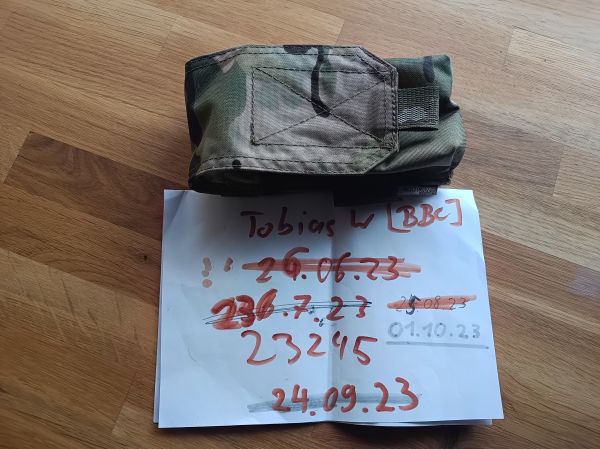 Tobias W [BBC]
26.06.23
236.7.23 25.08.23
01.10.23
23245
24.09.23